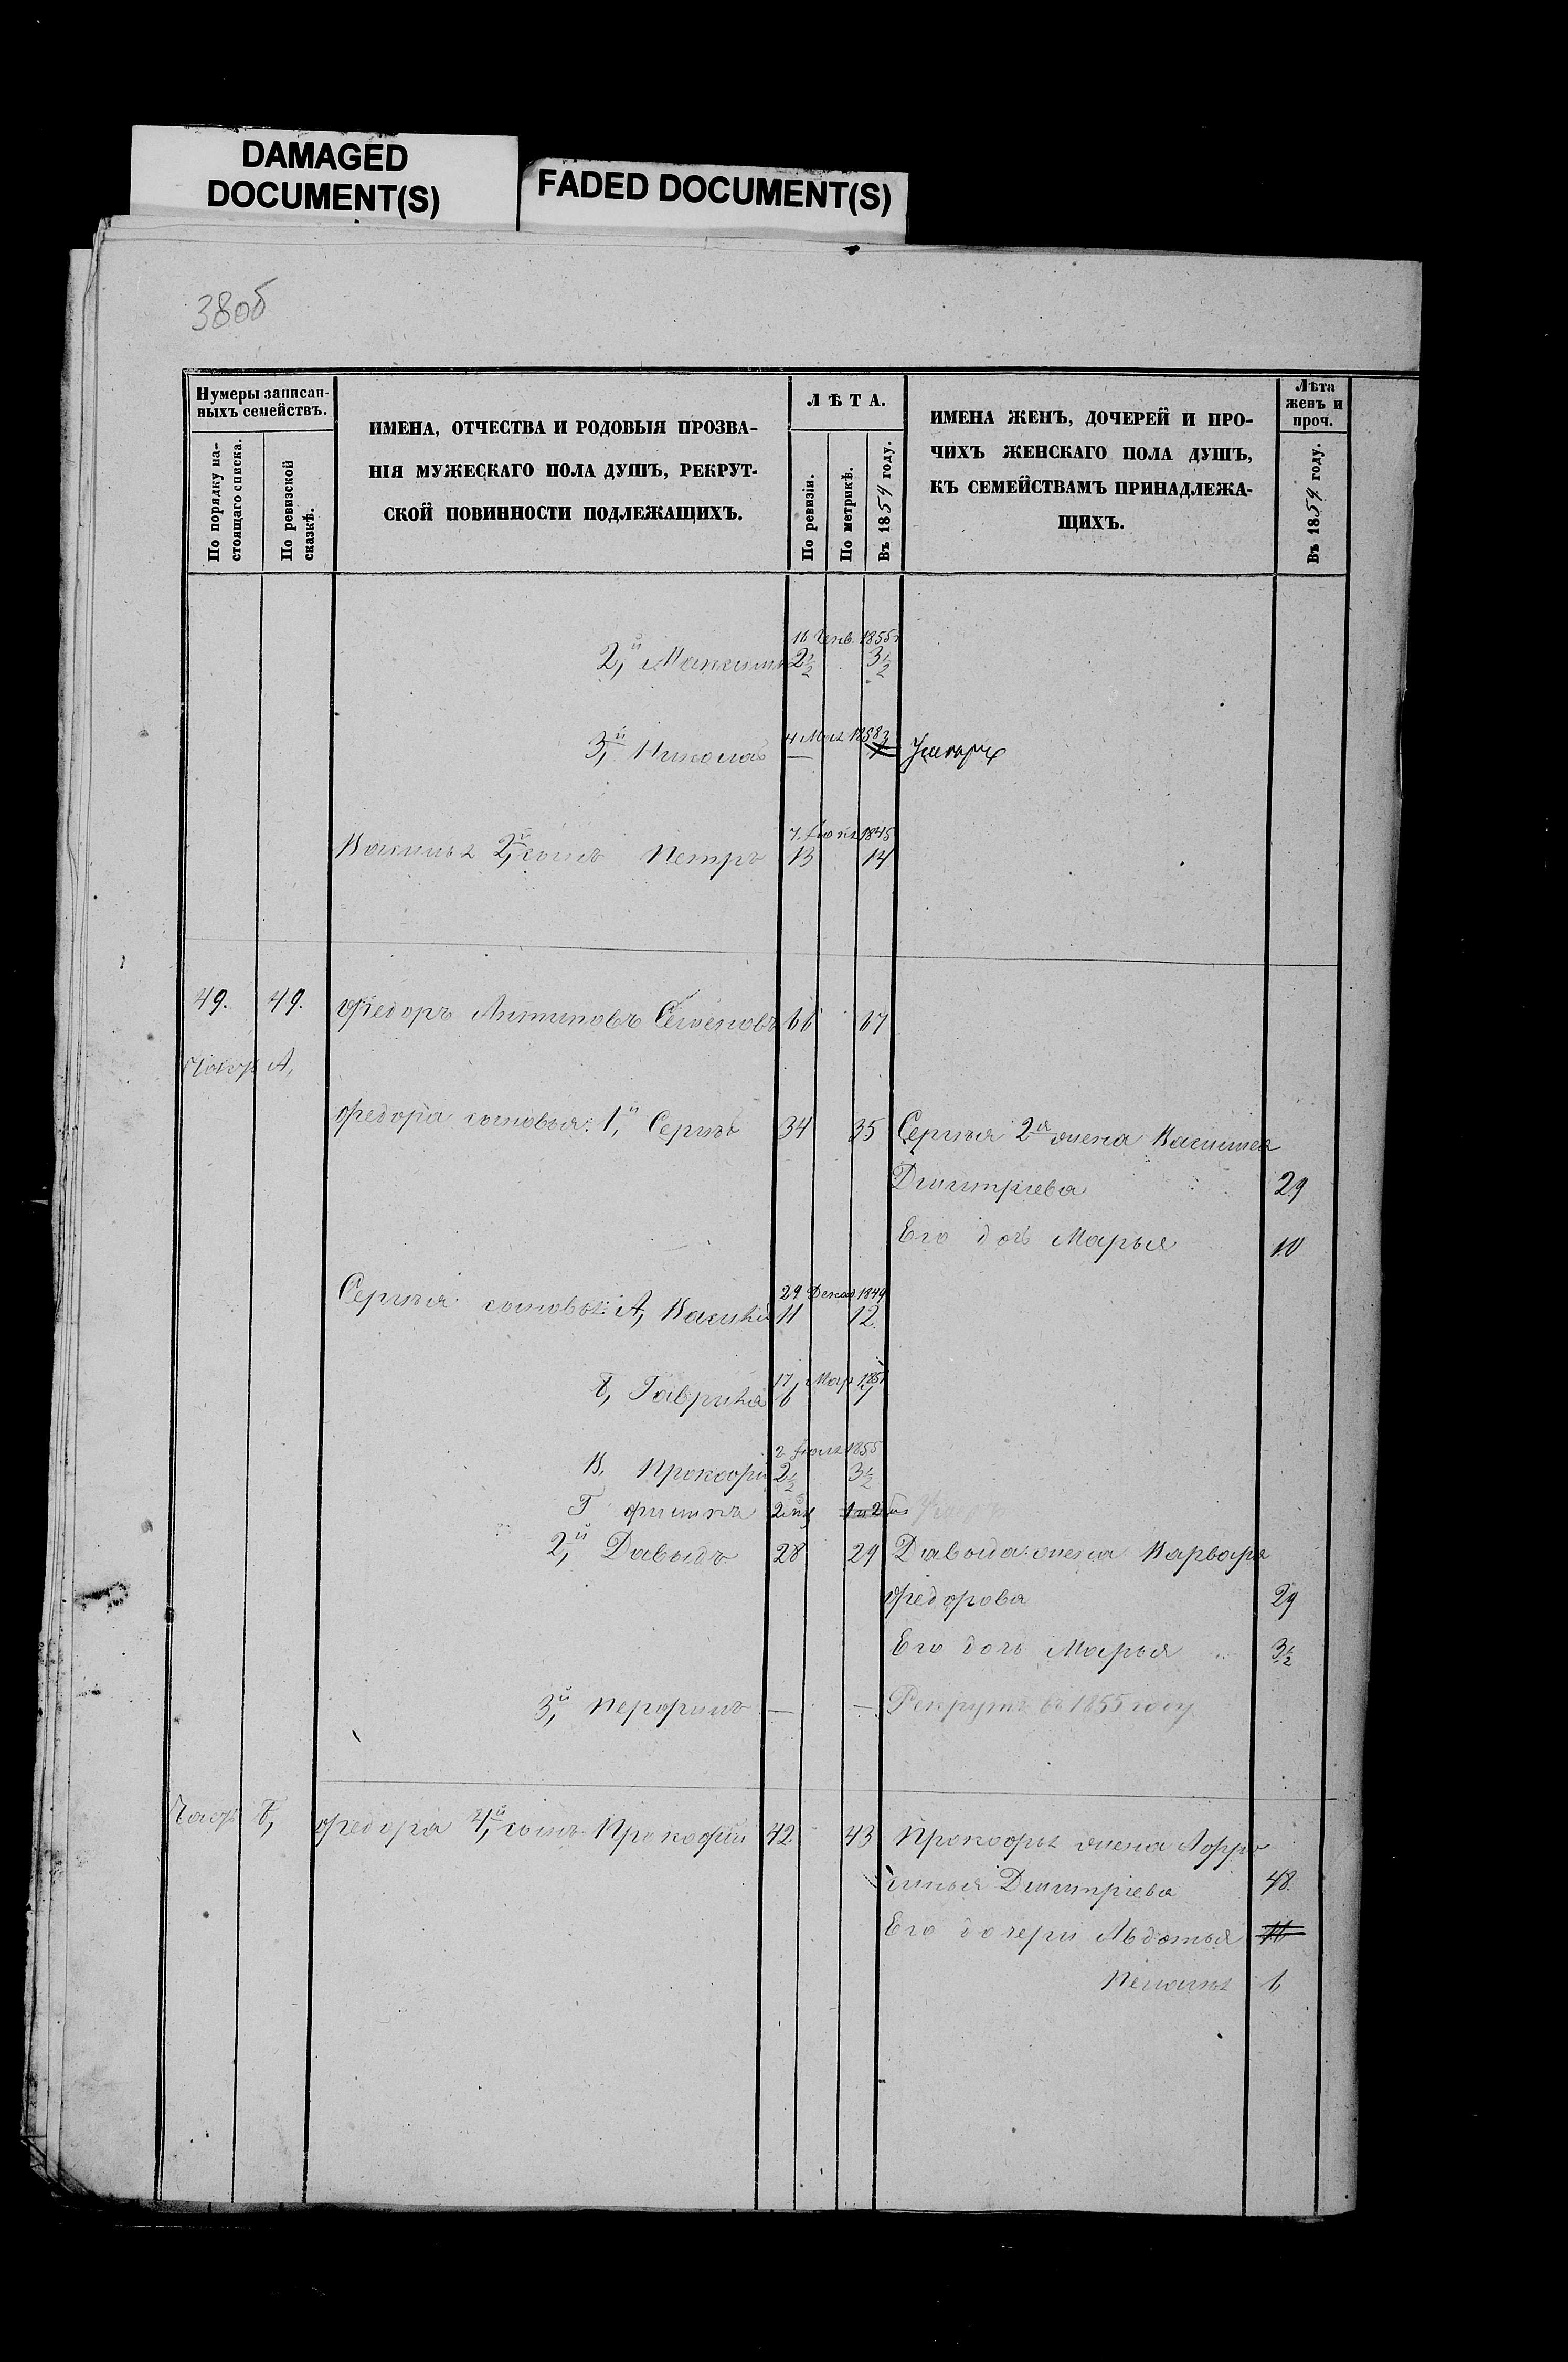 DAMAGED
DOCUMENT(S)
FADED DOCUMENT(S)
38об
Нумеры записан-
ныхъ семействъ.
По порядку на-
стоящаго списка.
По ревизской
сказкѣ.
ИМЕНА, ОТЧЕСТВА И РОДОВЫЯ ПРОЗВА-
НІЯ МУЖЕСКАГО ПОЛА ДУШЪ, РЕКРУТ-
СКОЙ ПОВИННОСТИ ПОДЛЕЖАЩИХЪ.
ЛѢТА.
По ревизіи.
По метрикѣ.
Въ 1859 году.
ИМЕНА ЖЕНЪ, ДОЧЕРЕЙ И ПРО-
ЧИХЪ ЖЕНСКАГО ПОЛА ДУШЪ,
КЪ СЕМЕЙСТВАМЪ ПРИНАДЛЕЖА-
ЩИХЪ.
Лѣта
женъ и
проч.
Въ 1859 году.
16 Генв. 1855
2й Максимъ 2½ 3½
4 Мая 1858
3й Николай —
7 1845
2й сынъ Петръ 13 14
49. 49. Федоръ Антиповъ Семеновъ 66 67
А,
Федора сыновья: 1й Сергѣй 34 35 Сергѣя 2я жена
Дмитріева 29
Его дочь Марья 10
29 Декаб. 1849
Сергѣя сыновья: А, Василій 11 12
17 Мар 185
б, Гаврила 6 7
2 1855
В, Прокофій 2½ 3½
Г
2й Давыдъ 28 29 Давыда жена Варвара
Федорова 29
Его дочь Марья 3½
3й Перфилъ — — Рекрутъ въ 1855 году
б, Федора 4й сынъ Прокофій 42 43 Прокофья жена Афро
синья Дмитріева 48
Его дочери Авдотья
Пелагея 6